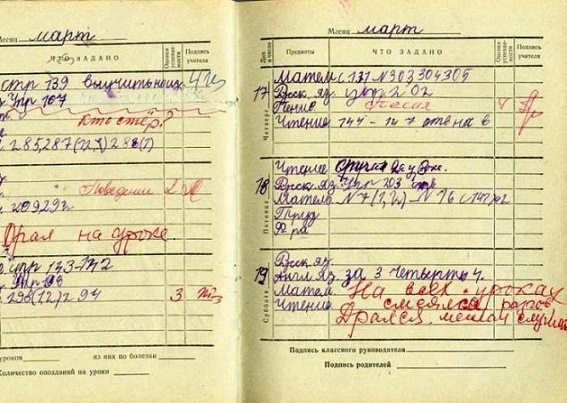 Месяц март
ЧТО ЗАДАНО
Оценка успеваемости
Подпись учителя
стр 139 выучить наиз.
Упр 167
Кто стёр?
285,287(1,2) 286(1)
Поведение 2
209292
Орал на уроке.
стр 133-142
298(12)294 3
уроков из них по болезни
Количество опозданий на уроки
Месяц март
Дни и числа
Предметы
ЧТО ЗАДАНО
Оценка успеваемости
Подпись учителя
Четверг
17
Матем с 137 N 303 304 305
Русск яз. упр 202
Пение Песня 4
Чтение 144-147 отв на в
Пятница
18
Чтение
Русск яз. Упр 203
Матем N 7(1,2) N 16 с 147
Труд
Ф-ра
Суббота
19
Русск яз.
Англ яз. за 3 четверть 4.
Матем На всех уроках
Чтение смеялся,
Дрался. мешал
Подпись классного руководителя
Подпись родителей